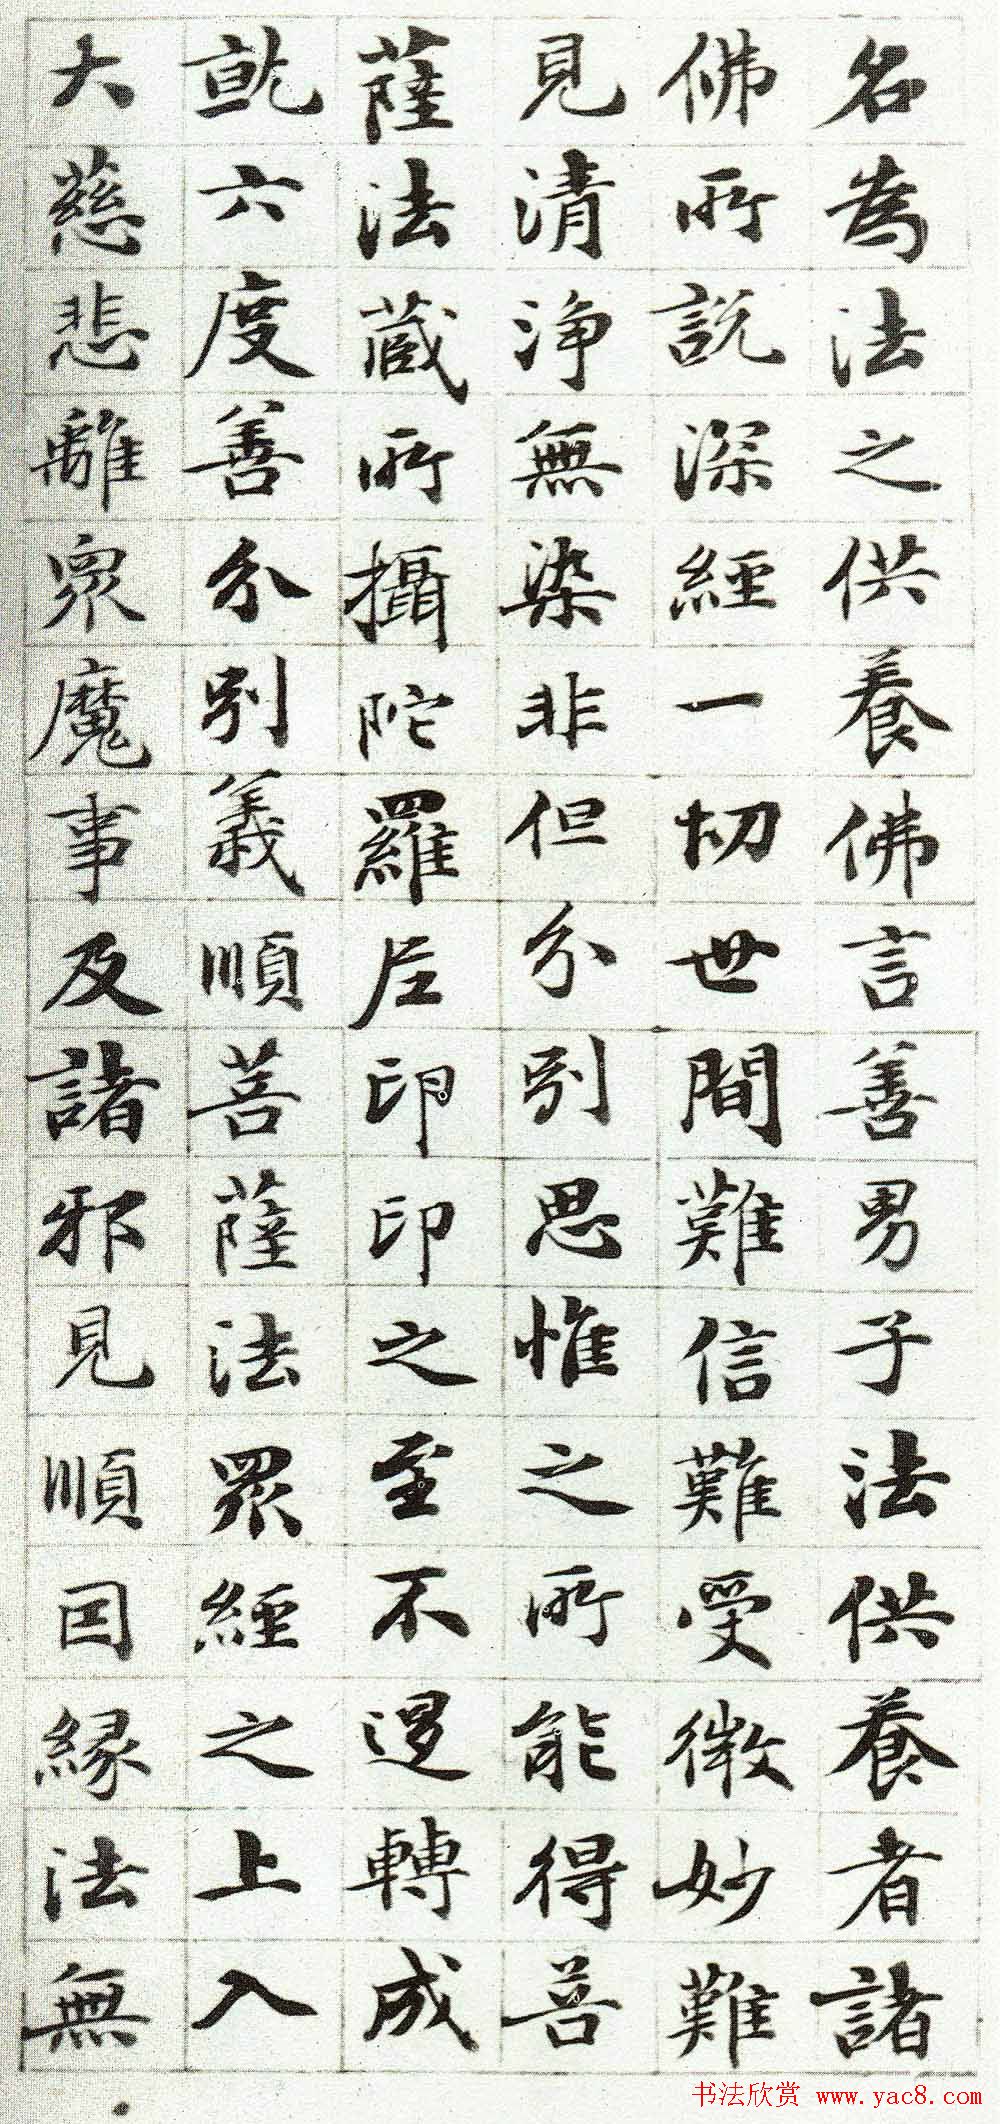 名為法之供養佛言善男子法供養者諸
佛所說深經一切世間難信難受微妙難
見清淨無染非但分別思惟之所能得菩
薩法藏所攝陀羅尼印印之至不退轉成
就六度善分別義順菩薩法眾經之上入
大慈悲離眾魔事及諸邪見順因緣法無
书法欣赏 www.yac8.com